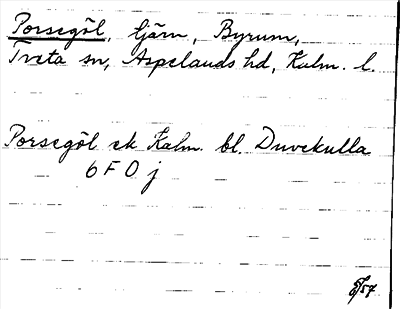 Porsegöl, tjärn, Byrum,
Tveta sn, Aspelands hd, Kalm. l.
Porsegöl ek Kalm. bl. Duvekulla
6 F 0 j